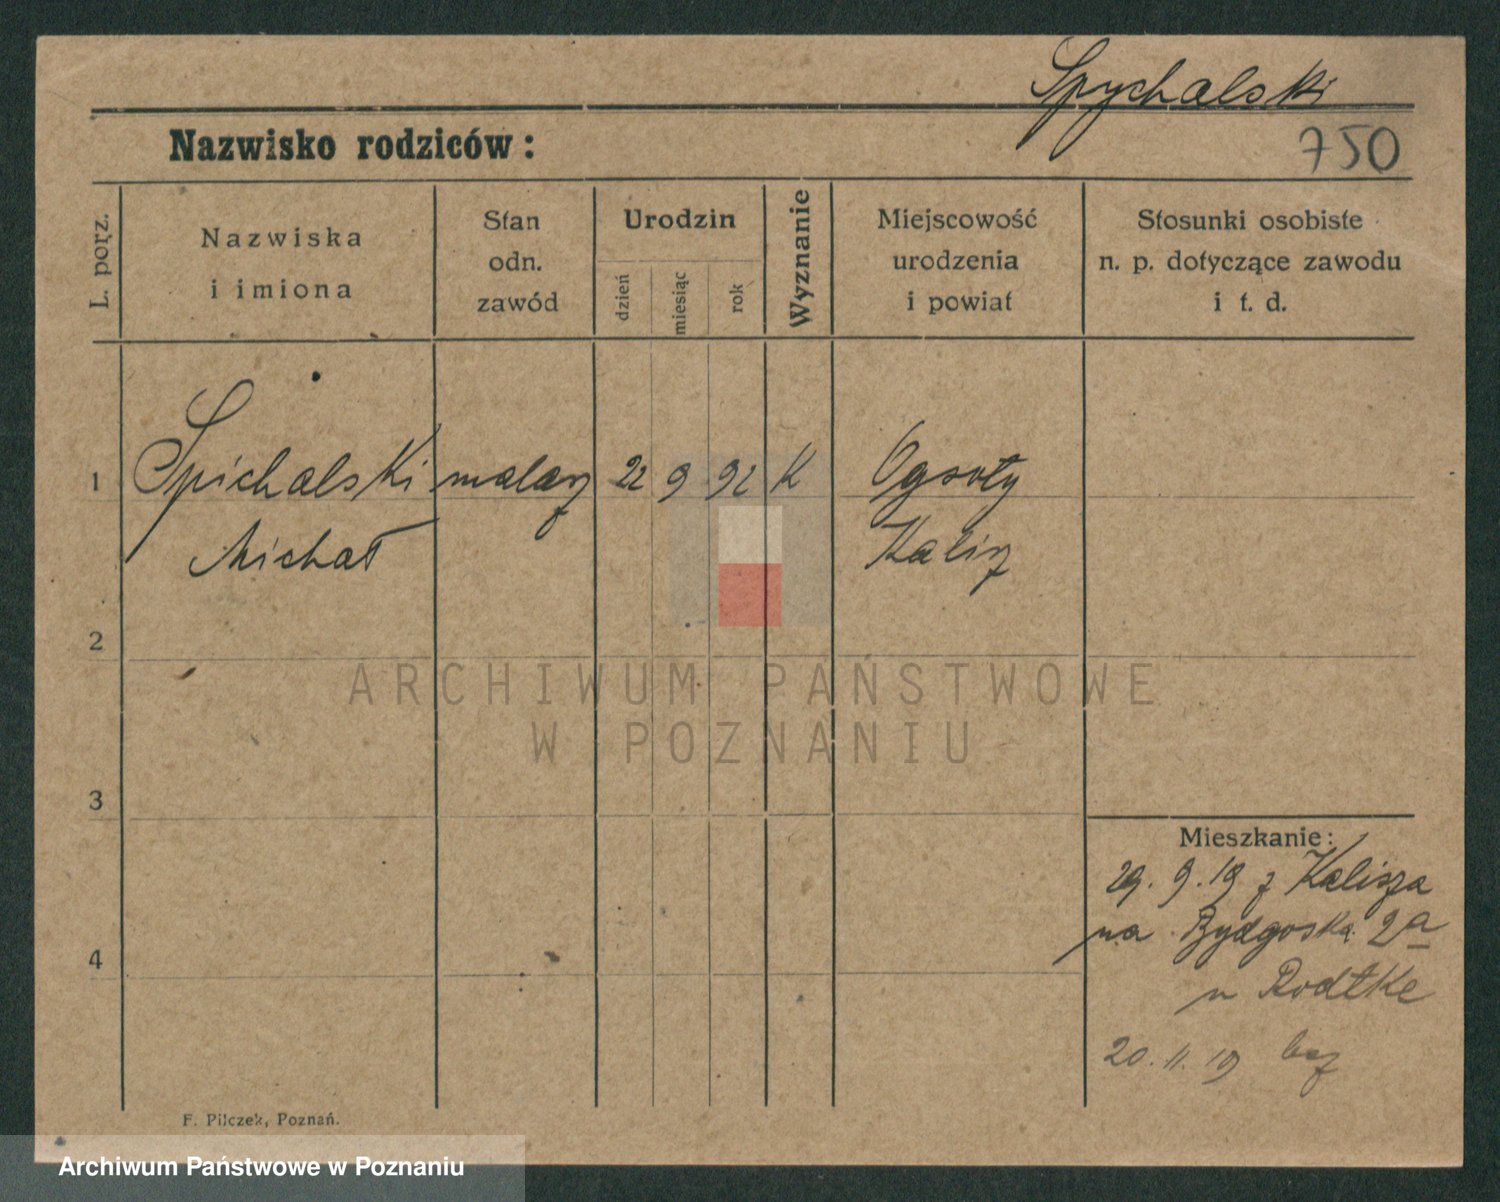 Spychalski
Nazwisko rodziców:
750
L. porz.
Nazwiska
i imiona
Stan
odn.
zawód
Urodzin
dzień
miesiąc
rok
Wyznanie
Miejscowość
urodzenia
i powiat
Stosunki osobiste
n. p. dotyczące zawodu
i t. d.
1
Spichalski malarz 22 9 92 K
Michał
Kalisz
2
ARCHIWUM PAŃSTWOWE
W POZNANIU
3
Mieszkanie:
29. 9. 19 z Kalisza
na Bydgoską 2a
4
20. 11. 19
F. Pilczek, Poznań.
Archiwum Państwowe w Poznaniu